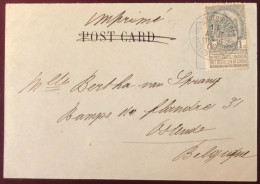 Imprimé
POST CARD
Mlle Bertha van Spranz
Rampe de Flandres 31
Ostende
Belgique